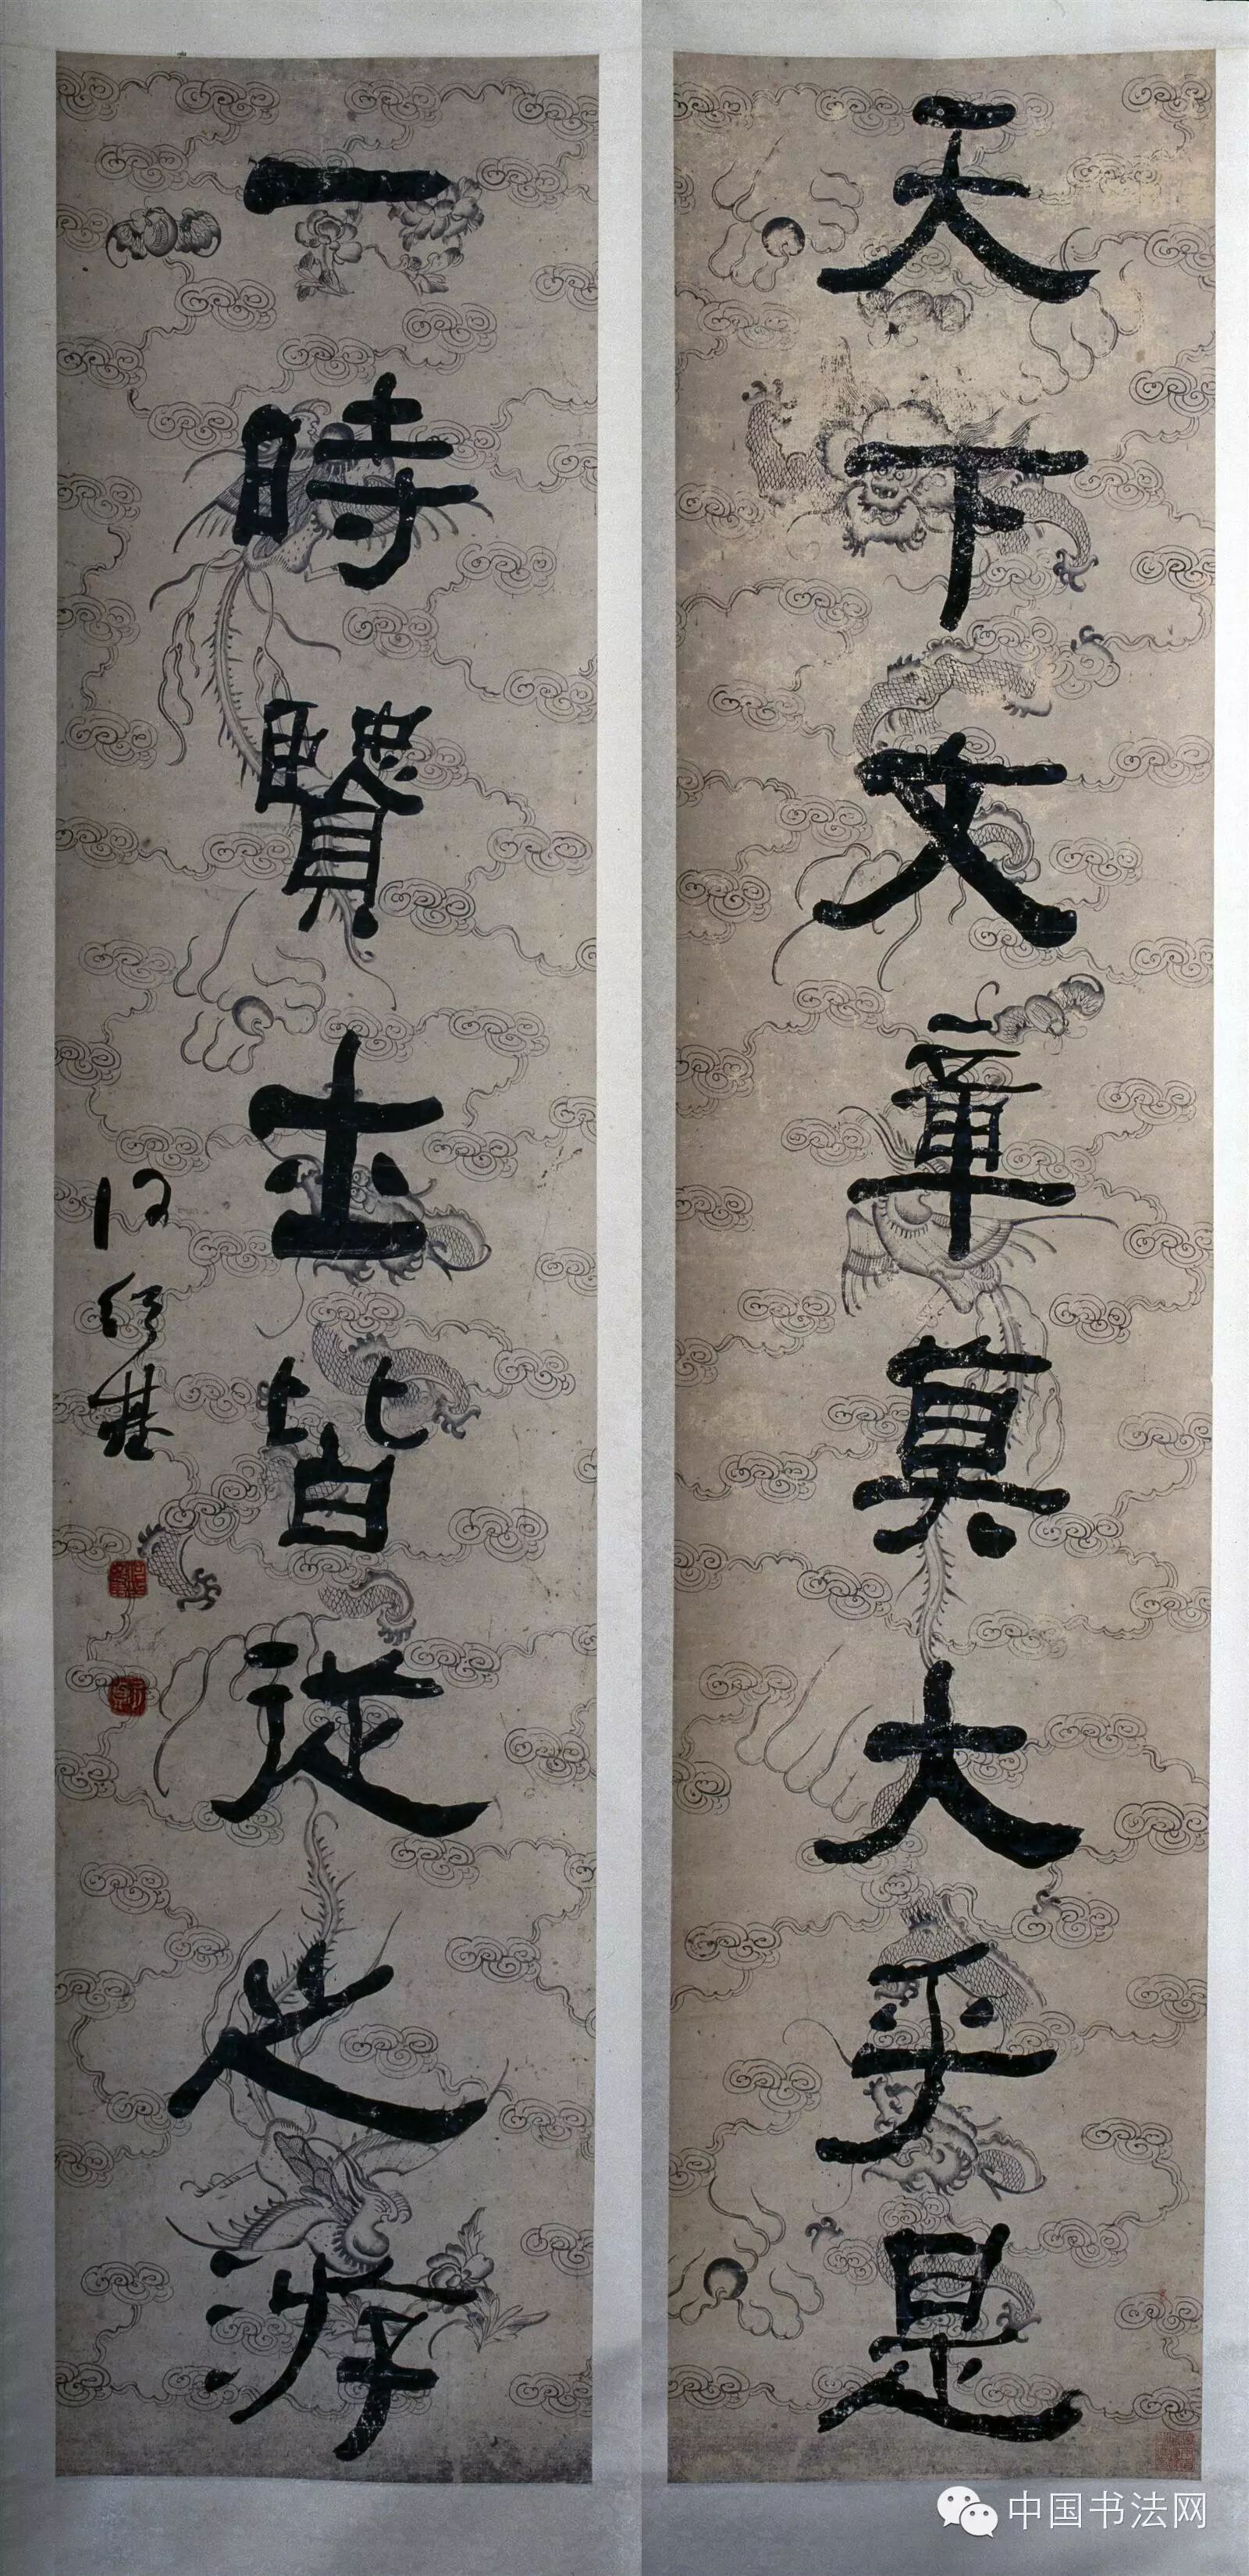 天下文章莫大乎是
一時賢士皆從之游
何紹基
中国书法网